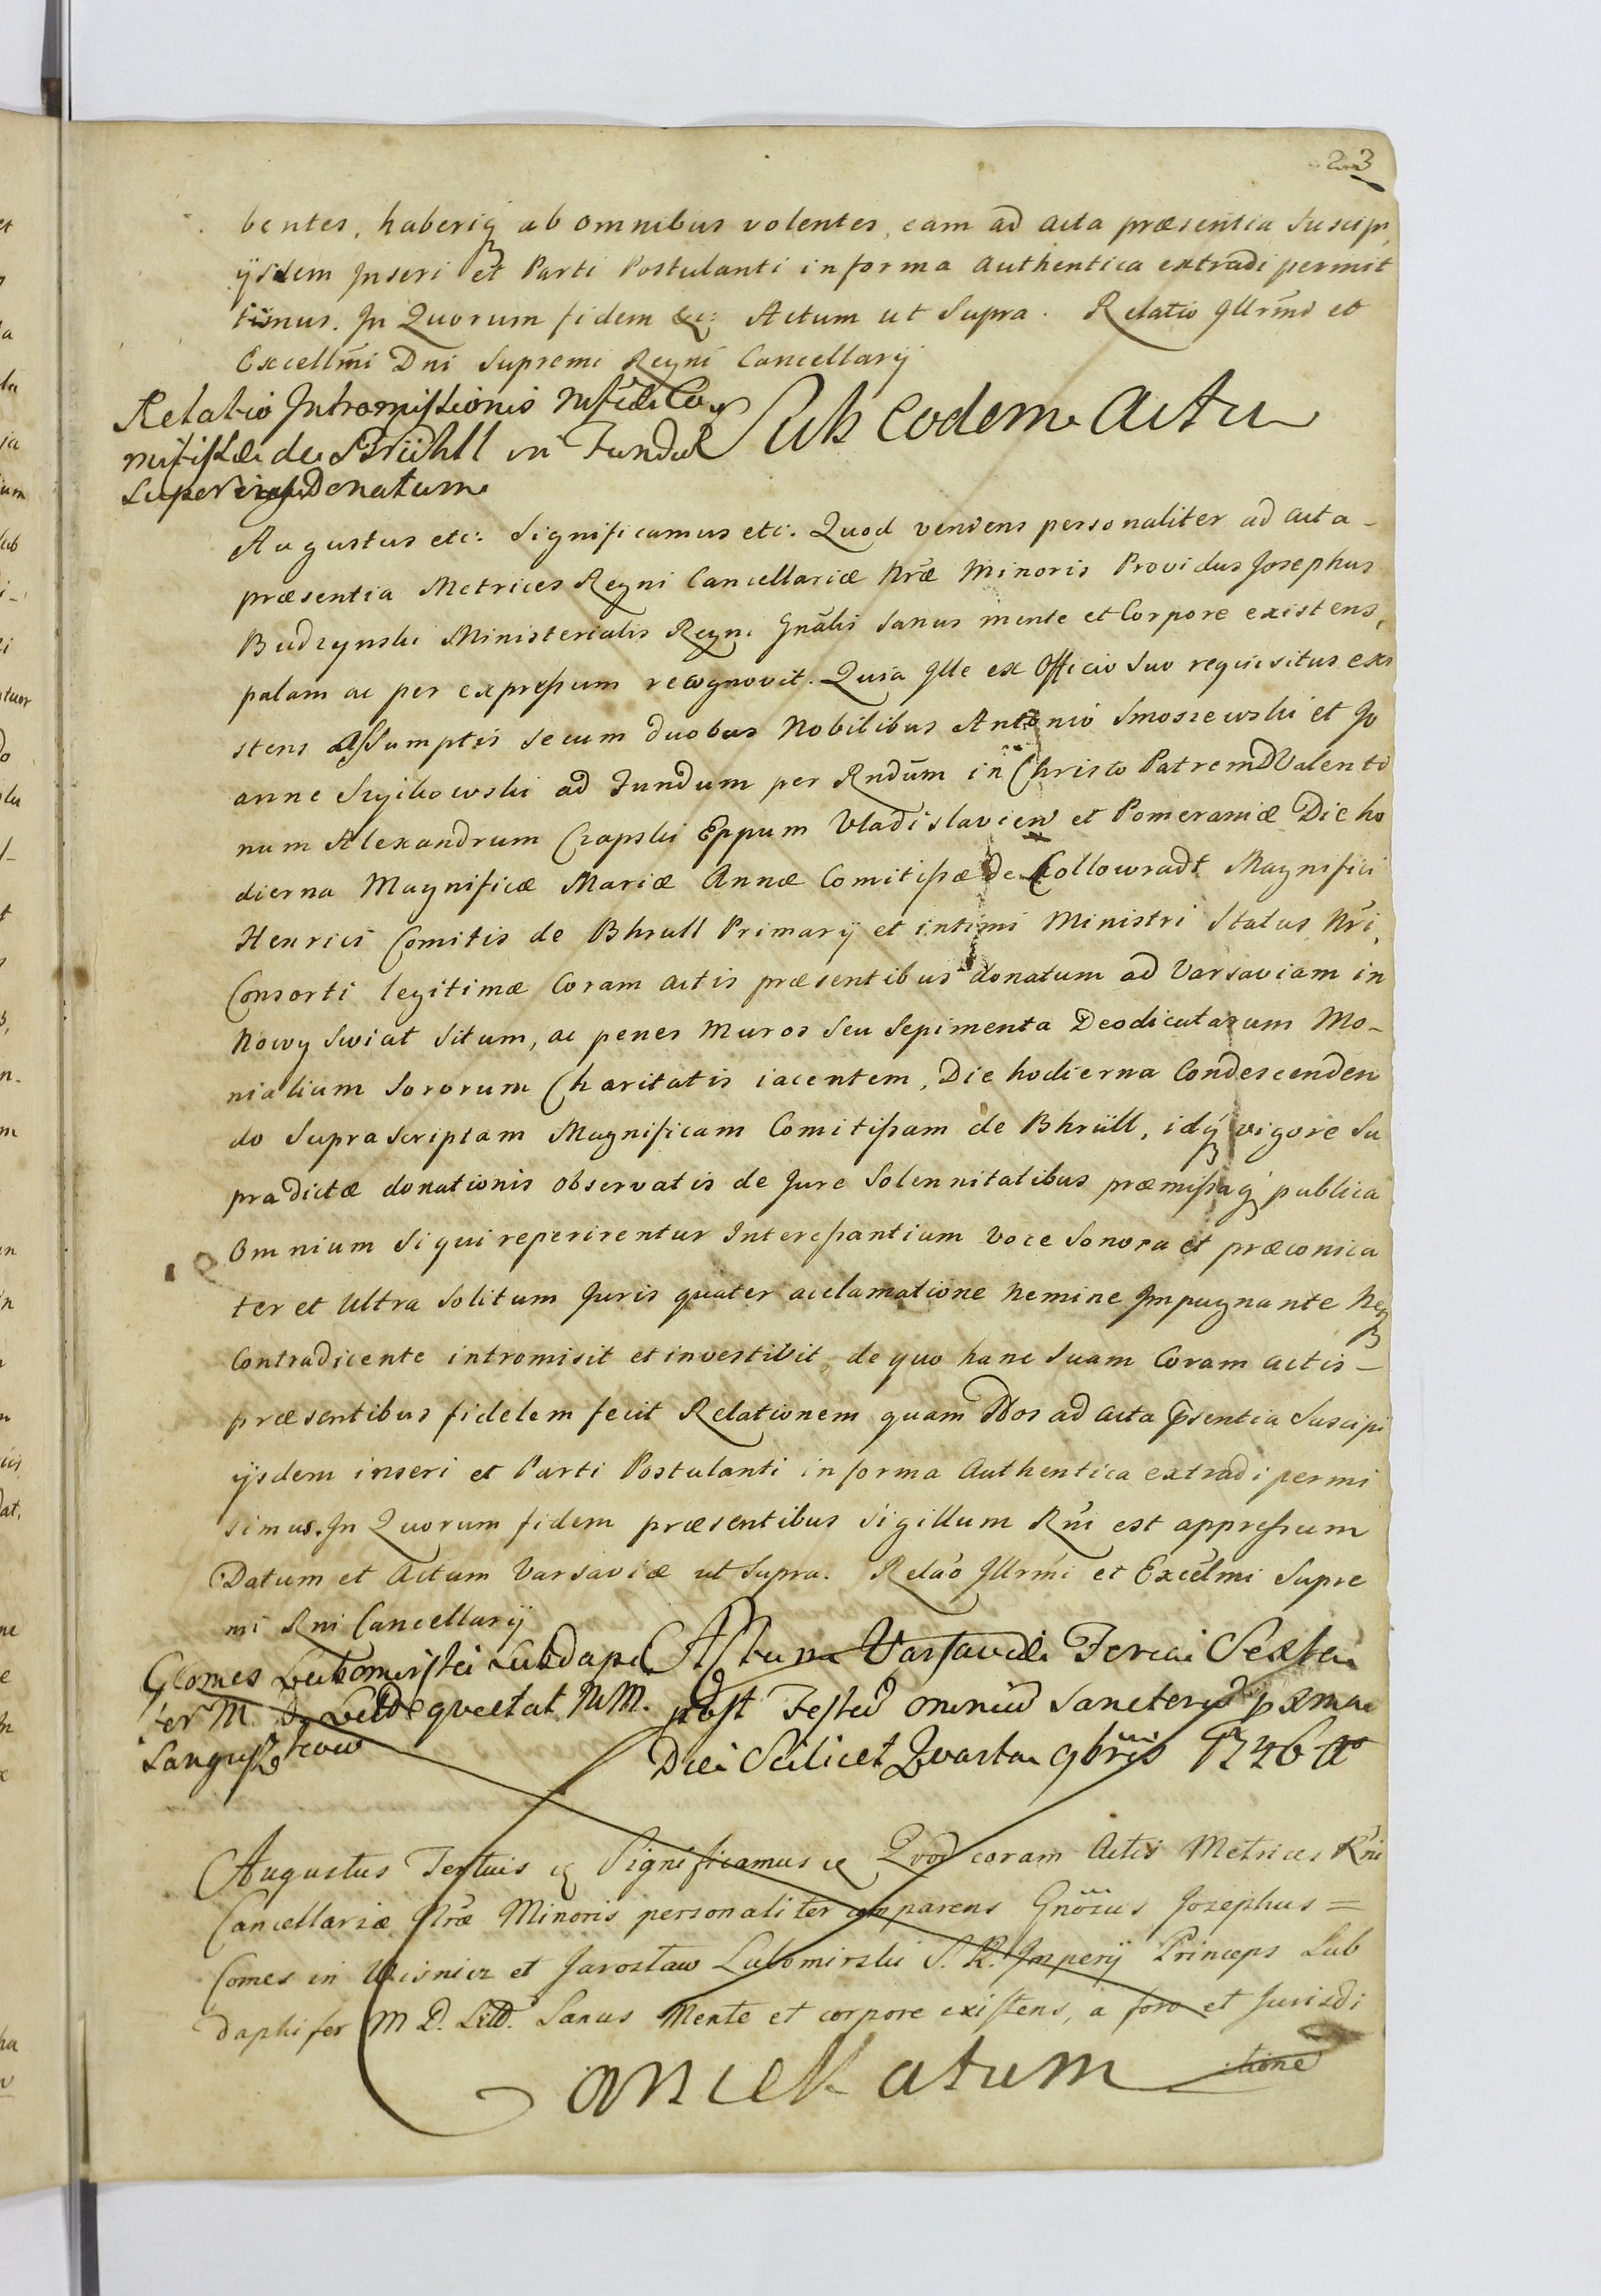 23
bentes, haberiq ab omnibus volentes, eam ad acta præsentia suscipi,
ijsdem Inseri et Parti Postulanti in forma authentica extradi permit
timus. In Quorum fidem &c: Actum ut Supra. Relatio Illrmi et
Excellmi Dni Supremi Regni Cancellarij
Relatio Intromissionis Mficæ Co
mitissæ de Brühll in Fundum
super eiusd donatum
Sub Eodem Actu
Augustus etc: Significamus etc. Quod veniens personaliter ad acta
præsentia Metrices Regni Cancellariæ Nræ Minoris Providus Josephus
Budzynski Ministerialis Regni Gnalis sanus mente et Corpore existens,
palam ac per expressum recognovit. Quia Ille ex Officio suo requisitus exi
stens assumptis secum duobus Nobilibus Antonio Smoszewski et Jo
anne Szyikowski ad Fundum per Rndum in Christo Patrem D Valenti
num Alexandrum Czapski Eppum Vladislavien et Pomeraniæ Die ho
dierna Magnificæ Mariæ Annæ Comitissæ de Collowradt Magnifici
Henrici Comitis de Bhrull Primarij et intimi Ministri Status Nri,
Consorti legitimæ Coram actis præsentibus donatum ad Varsaviam in
Nowy Swiat situm, ac penes muros seu sepimenta Deodicatarum Mo-
nialium Sororum Charitatis iacentem, Die hodierna Condescenden
do Suprascriptam Magnificam Comitissam de Bhrüll, idq vigore Su
pradictæ donationis observatis de Jure Solennitatibus præmissaq publica
Omnium si qui reperirentur Interessantium voce sonora et præconica
ter et ultra solitum Juris quater acclamatione nemine Impugnante Neq
Contradicente intromisit et investivit, de quo hanc suam Coram actis
præsentibus fidelem fecit Relationem quam Nos ad acta psentia suscipi
ijsdem inseri et Parti Postulanti in forma authentica extradi permi
simus. In Quorum fidem præsentibus sigillum Rni est appressum
Datum et Actum Varsaviæ ut supra. Relao Illrmi et Excelmi Supre
mi Rni Cancellarij
G Comes Lubomirski Subdapi
fer M. D. Litt quietat MM.
Sanguszkow
Actum Varsaviæ Feria Sexta
post Festu omniu Sanctoru pxma
Die Scilicet Quarta 9bris 1746 Ao
Augustus Tertius &c Significamus &c Quod coram Actis Metrices Rni
Cancellariæ Nræ Minoris personaliter comparens Gnosus Josephus =
Comes in Wisnicz et Jaroslaw Lubomirski S. R. Imperij Princeps Sub
dapifer M D. Litt. Sanus Mente et corpore existens, a foro et Jurisdi
ctione
Cancellatum